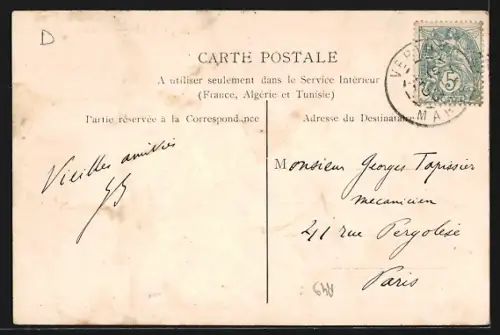 D
CARTE POSTALE
A utiliser seulement dans le Service Intérieur
(France, Algérie et Tunisie)
Partie réservée à la Correspondance
Adresse du Destinataire
5
MAR
Vieilles amitiés
Monsieur Georges Tapissier
mecanicien
41 rue Pergolèse
Paris